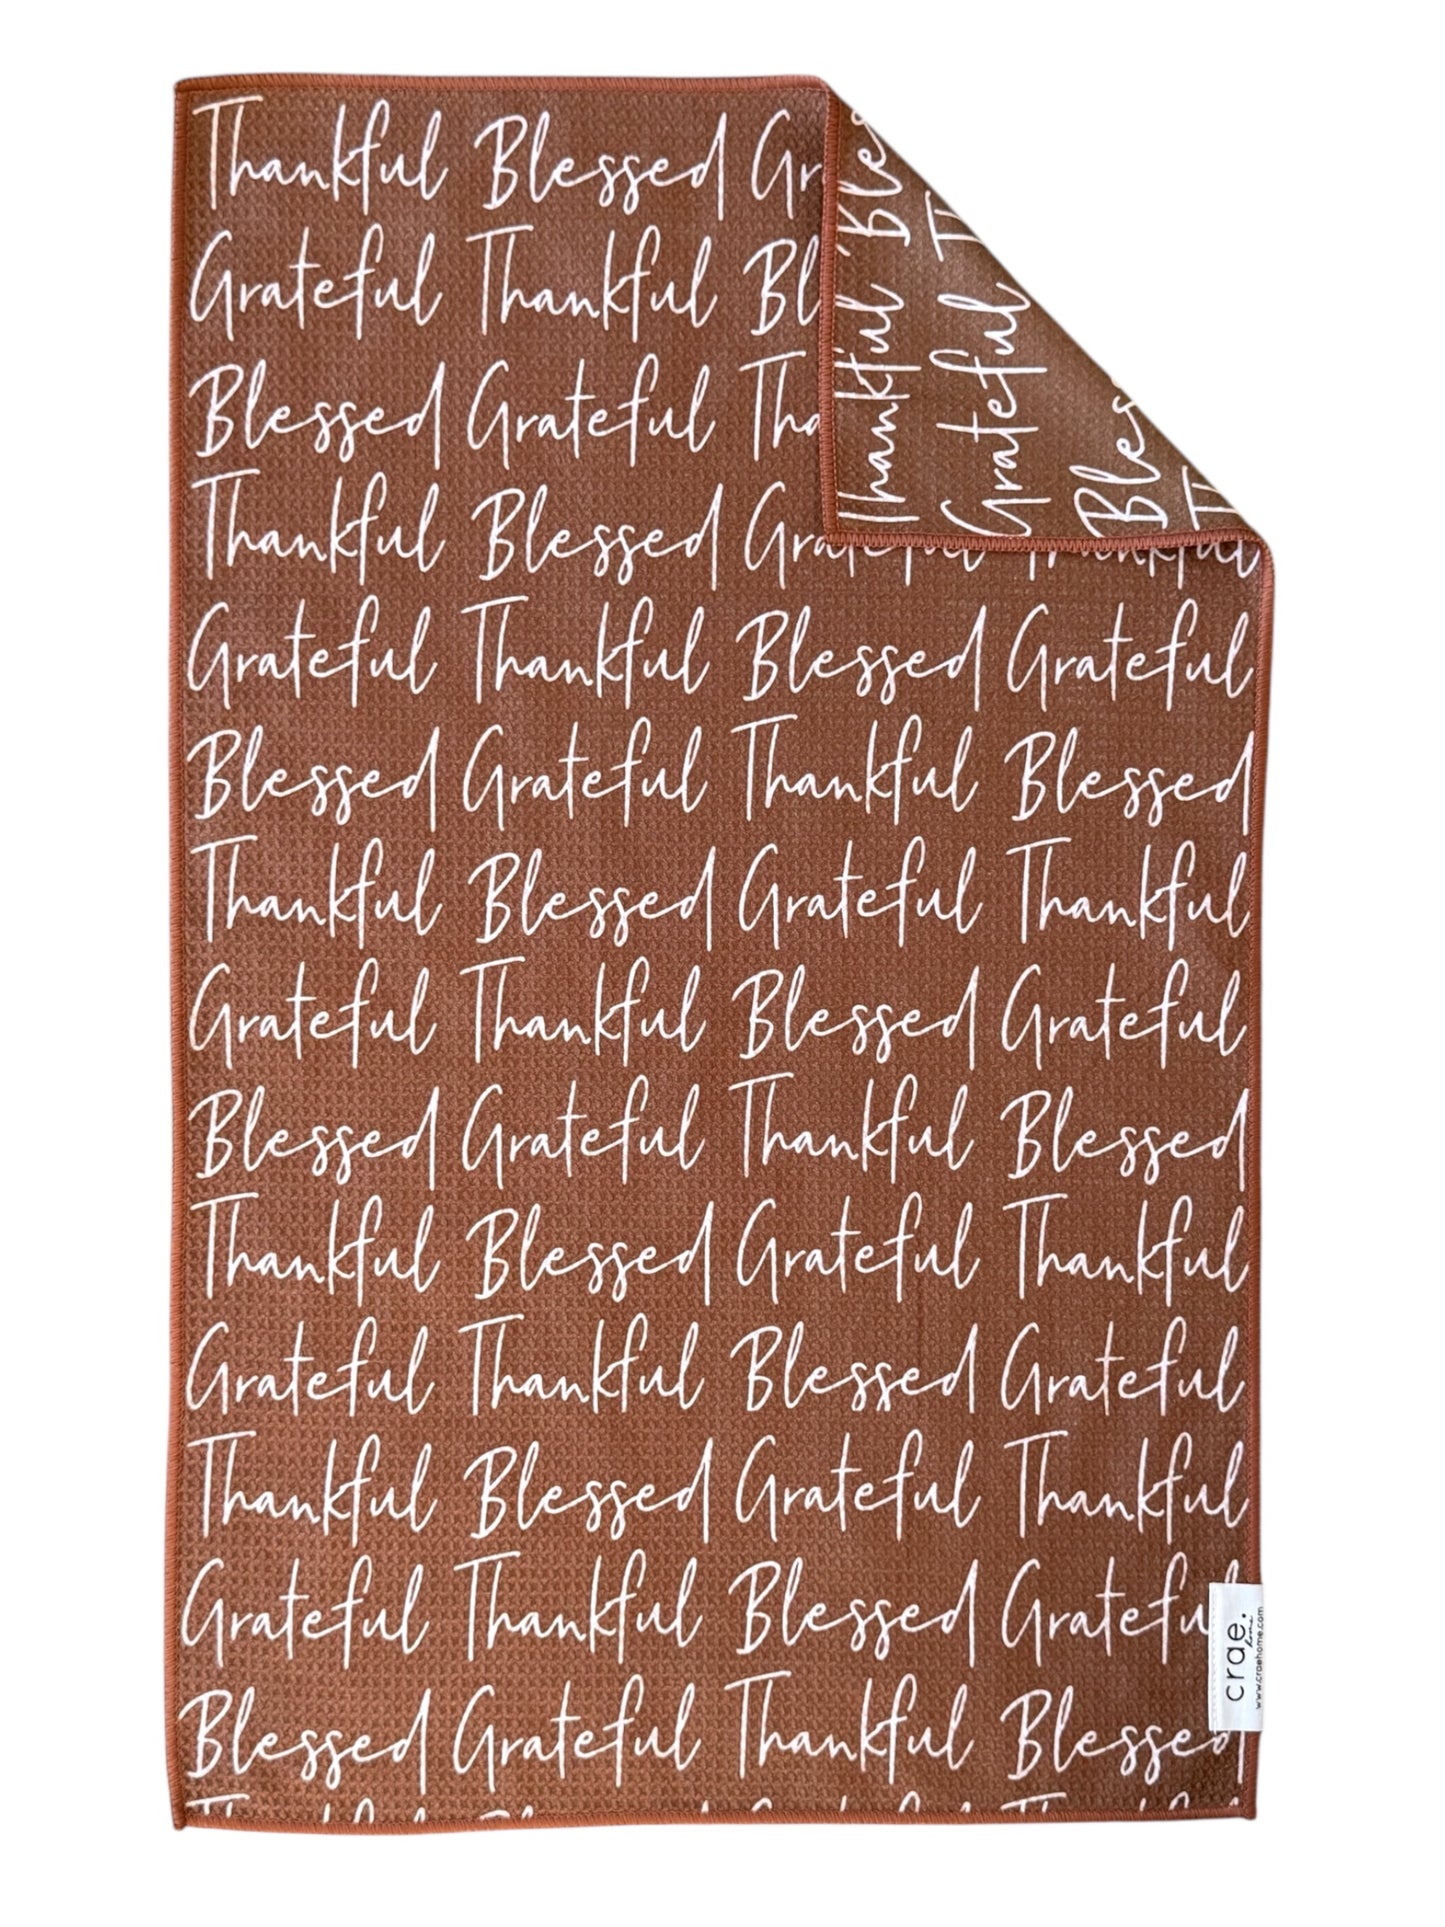 Thankful Blessed Gr
Grateful Thankful Bl
Blessed Grateful Tha
Thankful Blessed Grateful Thankful
Grateful Thankful Blessed Grateful
Blessed Grateful Thankful Blessed
Thankful Blessed Grateful Thankful
Grateful Thankful Blessed Grateful
Blessed Grateful Thankful Blessed
Thankful Blessed Grateful Thankful
Grateful Thankful Blessed Grateful
Thankful Blessed Grateful Thankful
Grateful Thankful Blessed Grateful
Blessed Grateful Thankful Blessed
Thankful Bles
Grateful T
Bles
crae.
home
www.craehome.com